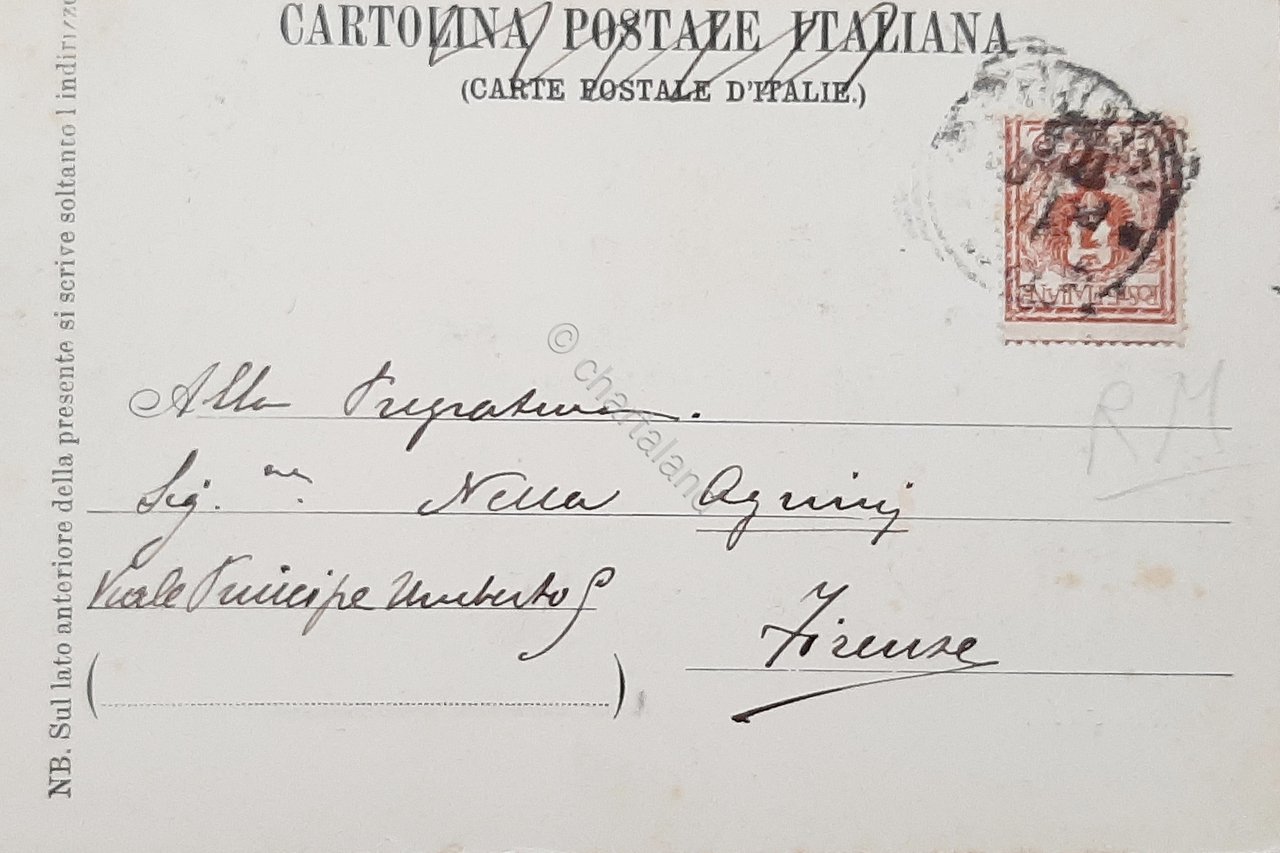 CARTOLINA POSTALE ITALIANA
(CARTE POSTALE D'ITALIE.)
NB. Sul lato anteriore della presente si scrive soltanto l'indirizzo
Alla
Sig.na Nella
Viale Principe Umberto
Firenze
RM
© chartaland